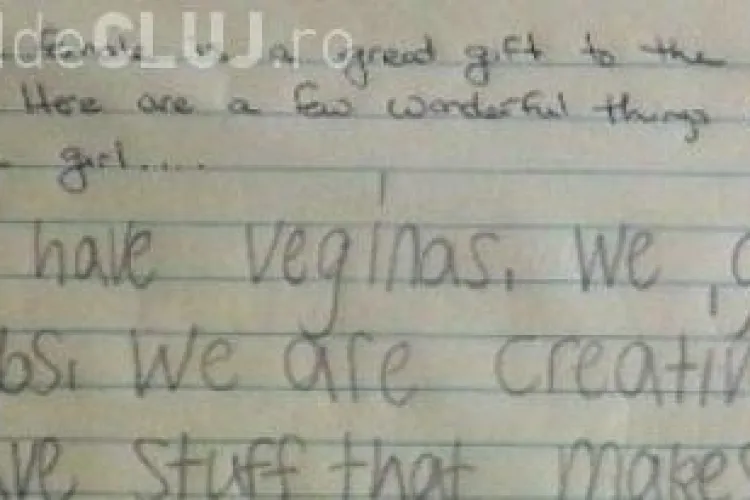 ldeCLUJ.ro
a great gift to the
Here are a few wonderful things
girl.....
have veginas. We g
bs. We are creativ
ve stuff that makes